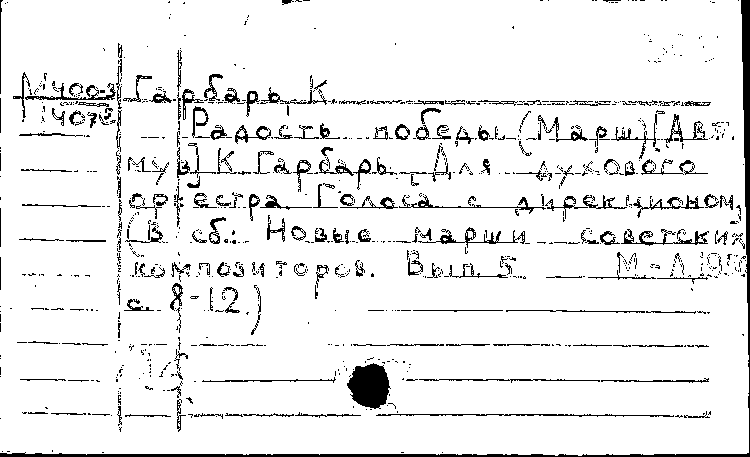 М400-3 Гарбарь, К.
Радость победы. (Марш) [Авт.
муз] К. Гарбарь. Для духового
оркестра. Голоса с дирекционом.
(В сб.: Новые марши советских
композиторов. Вып. 5 М.-Л,
с. 8-12.)